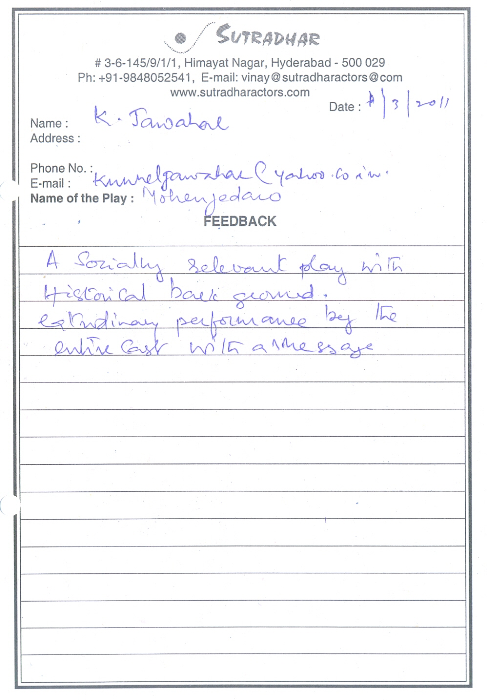 SUTRADHAR
# 3-6-145/9/1/1, Himayat Nagar, Hyderabad - 500 029
Ph: +91-9848052541, E-mail: vinay@sutradharactors@com
www.sutradharactors.com
Date : /3/2011
Name : K. Jawahar
Address :
Phone No. :
E-mail : @yahoo.co.in.
Name of the Play : Mohenjedaro
FEEDBACK
A Socially relevant play with
Historical back ground.
extrudinary performance by the
entire Cast with a Message